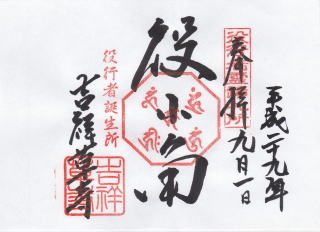 平成二十九年
奉拝 九月一日
役小角
役行者誕生所
吉祥草寺